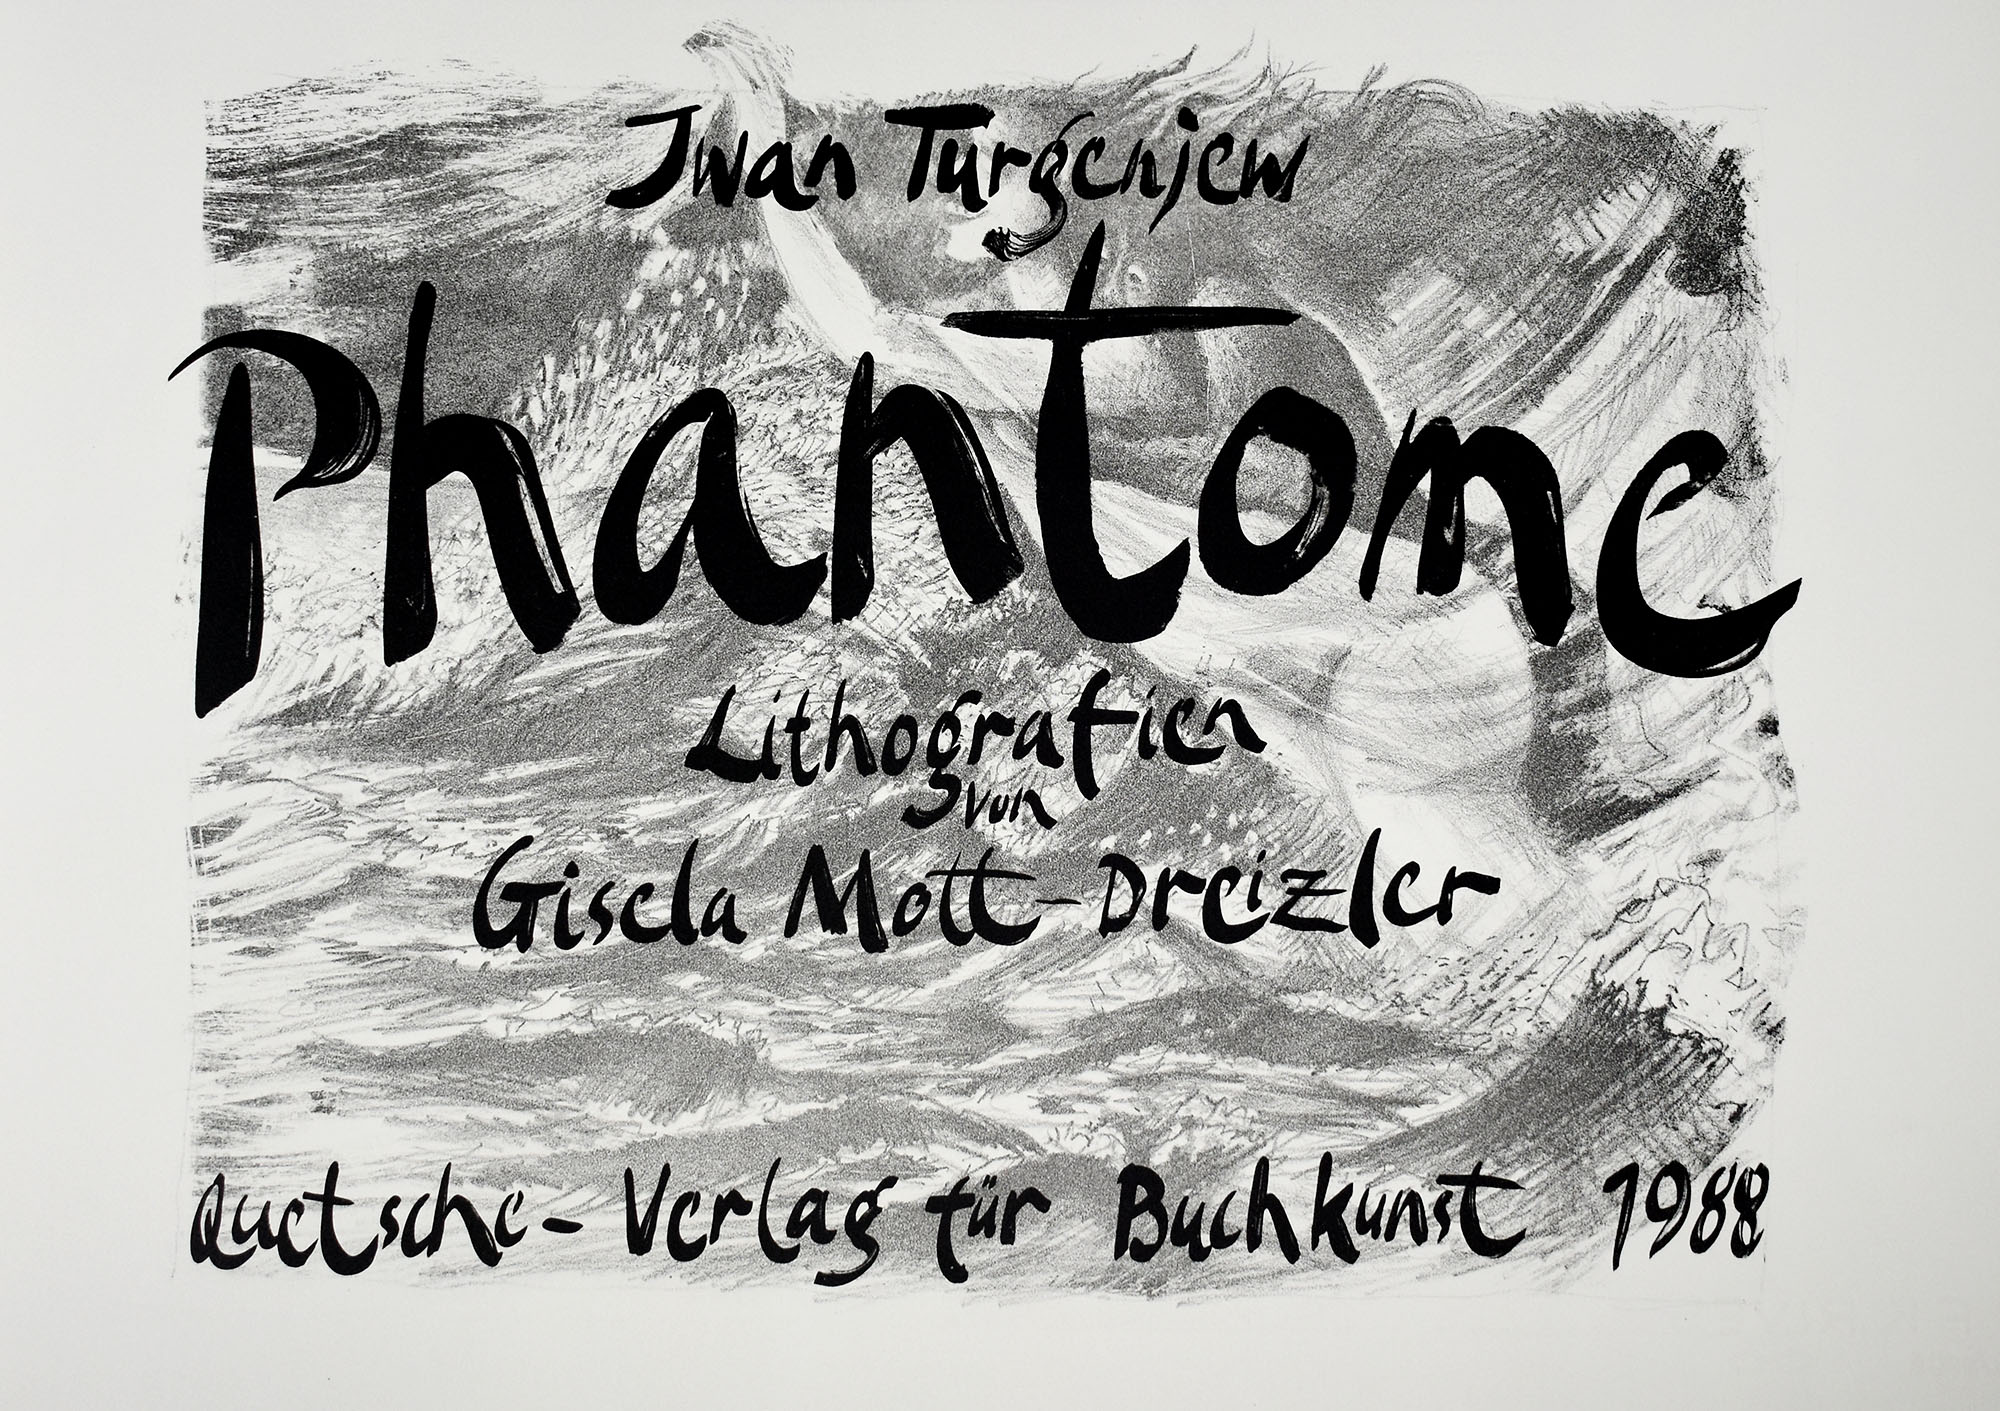 Jwan Turgenjew
Phantome
Lithografien
von
Gisela Mott-Dreizler
Quetsche-Verlag für Buchkunst 1988